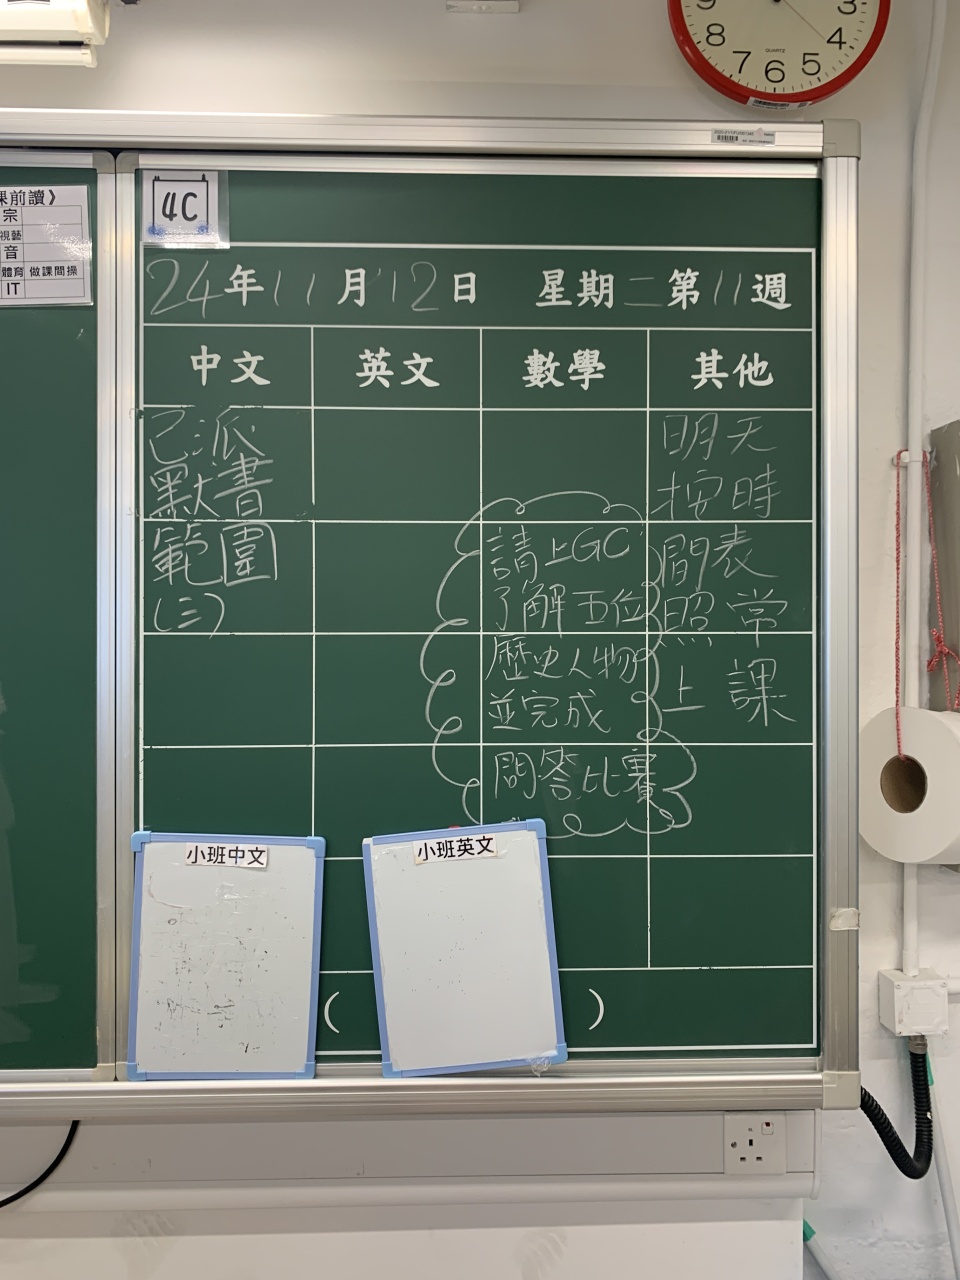 9
3
8
4
7
6
5
QUARTZ
課前讀》
宗
視藝
音
體育 做課間操
IT
4C
24年11月12日 星期二第11週
中文 英文 數學 其他
已派
默書
範圍
(三)
請上GC
了解五位
歷史人物
並完成
問答比賽
明天
按時
間表
照常
上課
小班中文
小班英文
( )